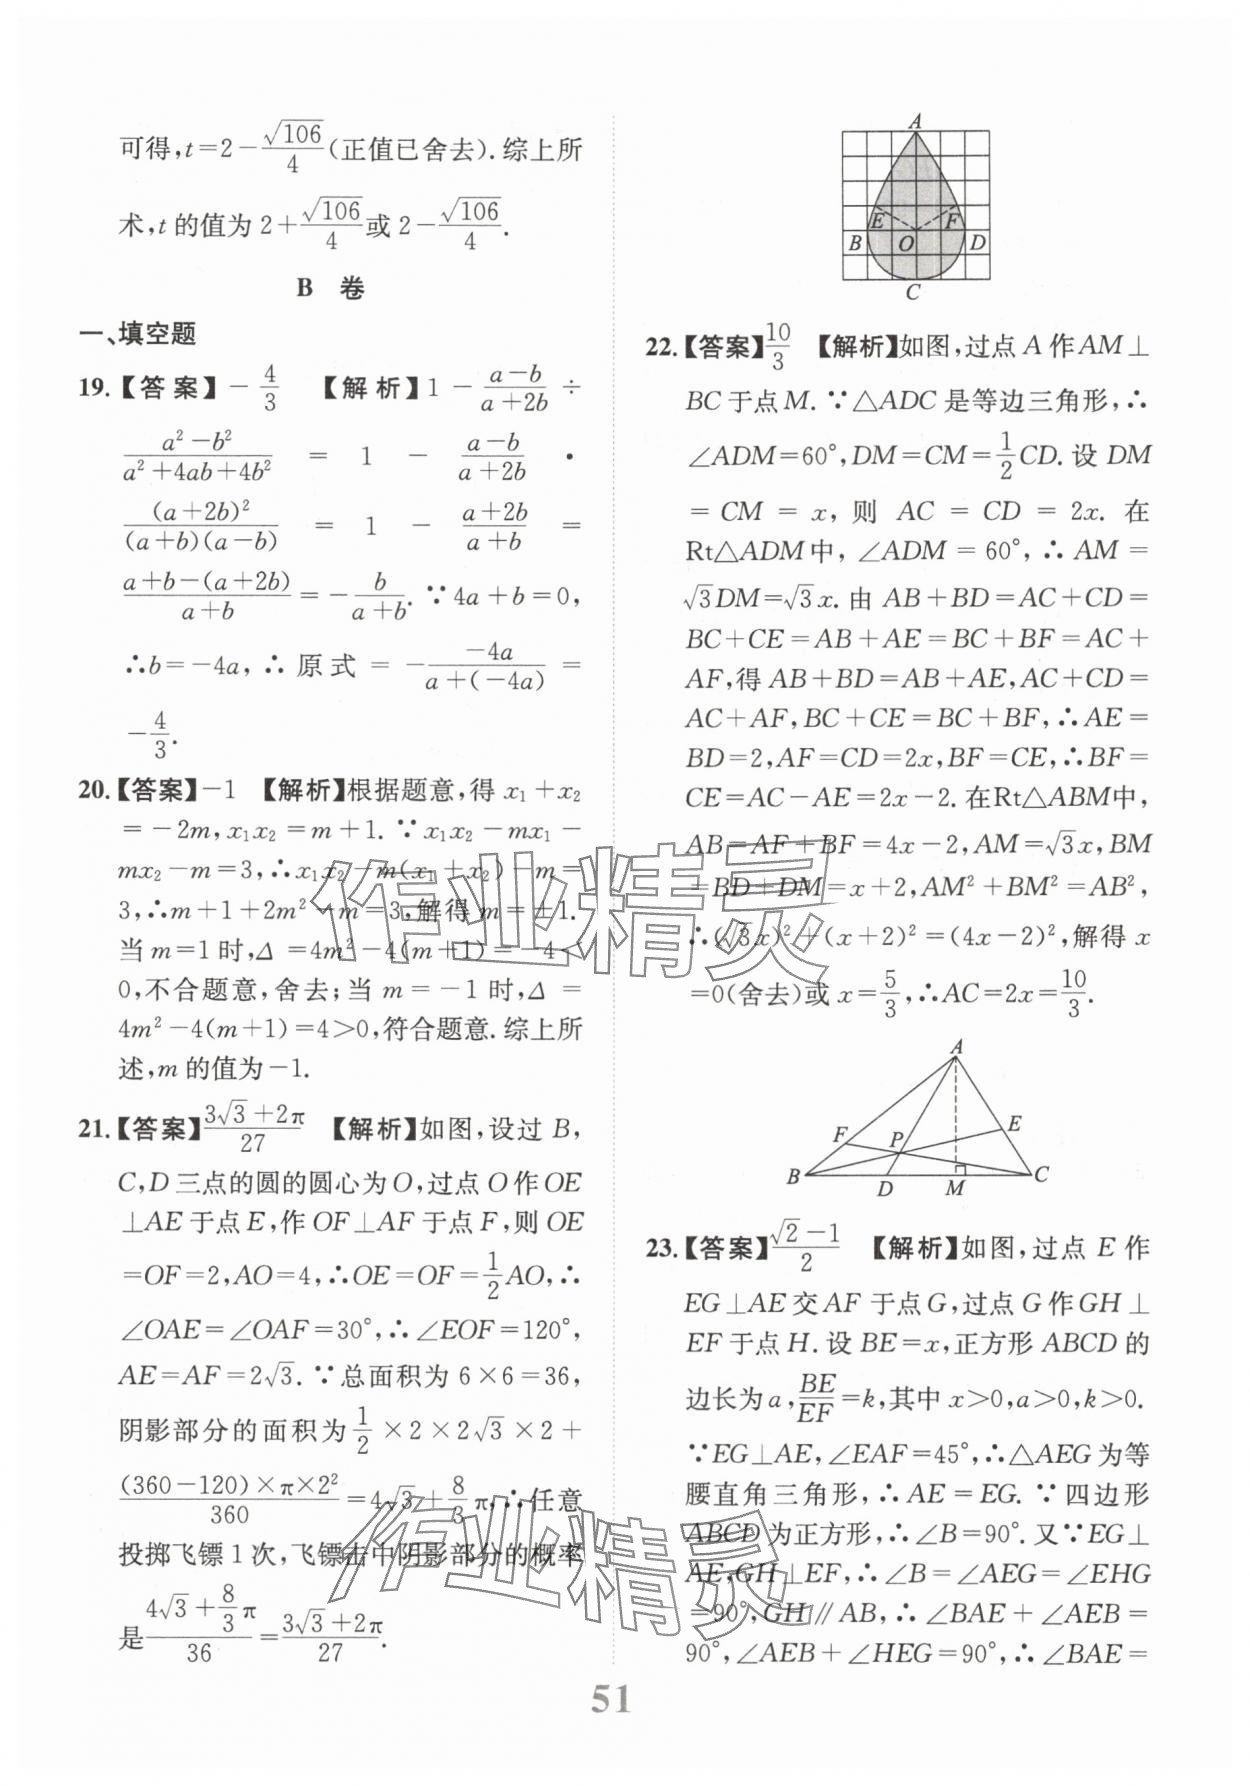 可得,t=2-√106/4(正值已舍去).综上所
术,t的值为2+√106/4或2-√106/4.
B 卷
一、填空题
19.【答案】-4/3 【解析】1-(a-b)/(a+2b)÷
(a²-b²)/(a²+4ab+4b²) = 1 - (a-b)/(a+2b) ·
(a+2b)²/((a+b)(a-b)) = 1 - (a+2b)/(a+b) =
(a+b-(a+2b))/(a+b)=-b/(a+b).∵4a+b=0,
∴b=-4a,∴原式=-(-4a)/(a+(-4a))=
-4/3.
20.【答案】-1 【解析】根据题意,得x₁+x₂
=-2m,x₁x₂=m+1.∵x₁x₂-mx₁-
mx₂-m=3,∴x₁x₂-m(x₁+x₂)-m=
3,∴m+1+2m²-m=3,解得m=±1.
当m=1时,Δ=4m²-4(m+1)=-4<
0,不合题意,舍去;当m=-1时,Δ=
4m²-4(m+1)=4>0,符合题意.综上所
述,m的值为-1.
21.【答案】(3√3+2π)/27 【解析】如图,设过B,
C,D三点的圆的圆心为O,过点O作OE
⊥AE于点E,作OF⊥AF于点F,则OE
=OF=2,AO=4,∴OE=OF=1/2AO,∴
∠OAE=∠OAF=30°,∴∠EOF=120°,
AE=AF=2√3.∵总面积为6×6=36,
阴影部分的面积为1/2×2×2√3×2+
((360-120)×π×2²)/360=4√3+8/3π,∴任意
投掷飞镖1次,飞镖击中阴影部分的概率
是(4√3+8/3π)/36=(3√3+2π)/27.
A
E F
B O D
C
22.【答案】10/3 【解析】如图,过点A作AM⊥
BC于点M.∵△ADC是等边三角形,∴
∠ADM=60°,DM=CM=1/2CD.设DM
=CM=x,则AC=CD=2x.在
Rt△ADM中,∠ADM=60°,∴AM=
√3DM=√3x.由AB+BD=AC+CD=
BC+CE=AB+AE=BC+BF=AC+
AF,得AB+BD=AB+AE,AC+CD=
AC+AF,BC+CE=BC+BF,∴AE=
BD=2,AF=CD=2x,BF=CE,∴BF=
CE=AC-AE=2x-2.在Rt△ABM中,
AB=AF+BF=4x-2,AM=√3x,BM
=BD+DM=x+2,AM²+BM²=AB²,
∴(√3x)²+(x+2)²=(4x-2)²,解得x
=0(舍去)或x=5/3,∴AC=2x=10/3.
A
F P E
B D M C
23.【答案】(√2-1)/2 【解析】如图,过点E作
EG⊥AE交AF于点G,过点G作GH⊥
EF于点H.设BE=x,正方形ABCD的
边长为a,BE/EF=k,其中x>0,a>0,k>0.
∵EG⊥AE,∠EAF=45°,∴△AEG为等
腰直角三角形,∴AE=EG.∵四边形
ABCD为正方形,∴∠B=90°.又∵EG⊥
AE,GH⊥EF,∴∠B=∠AEG=∠EHG
=90°,GH∥AB,∴∠BAE+∠AEB=
90°,∠AEB+∠HEG=90°,∴∠BAE=
51
作业精灵
作业精灵